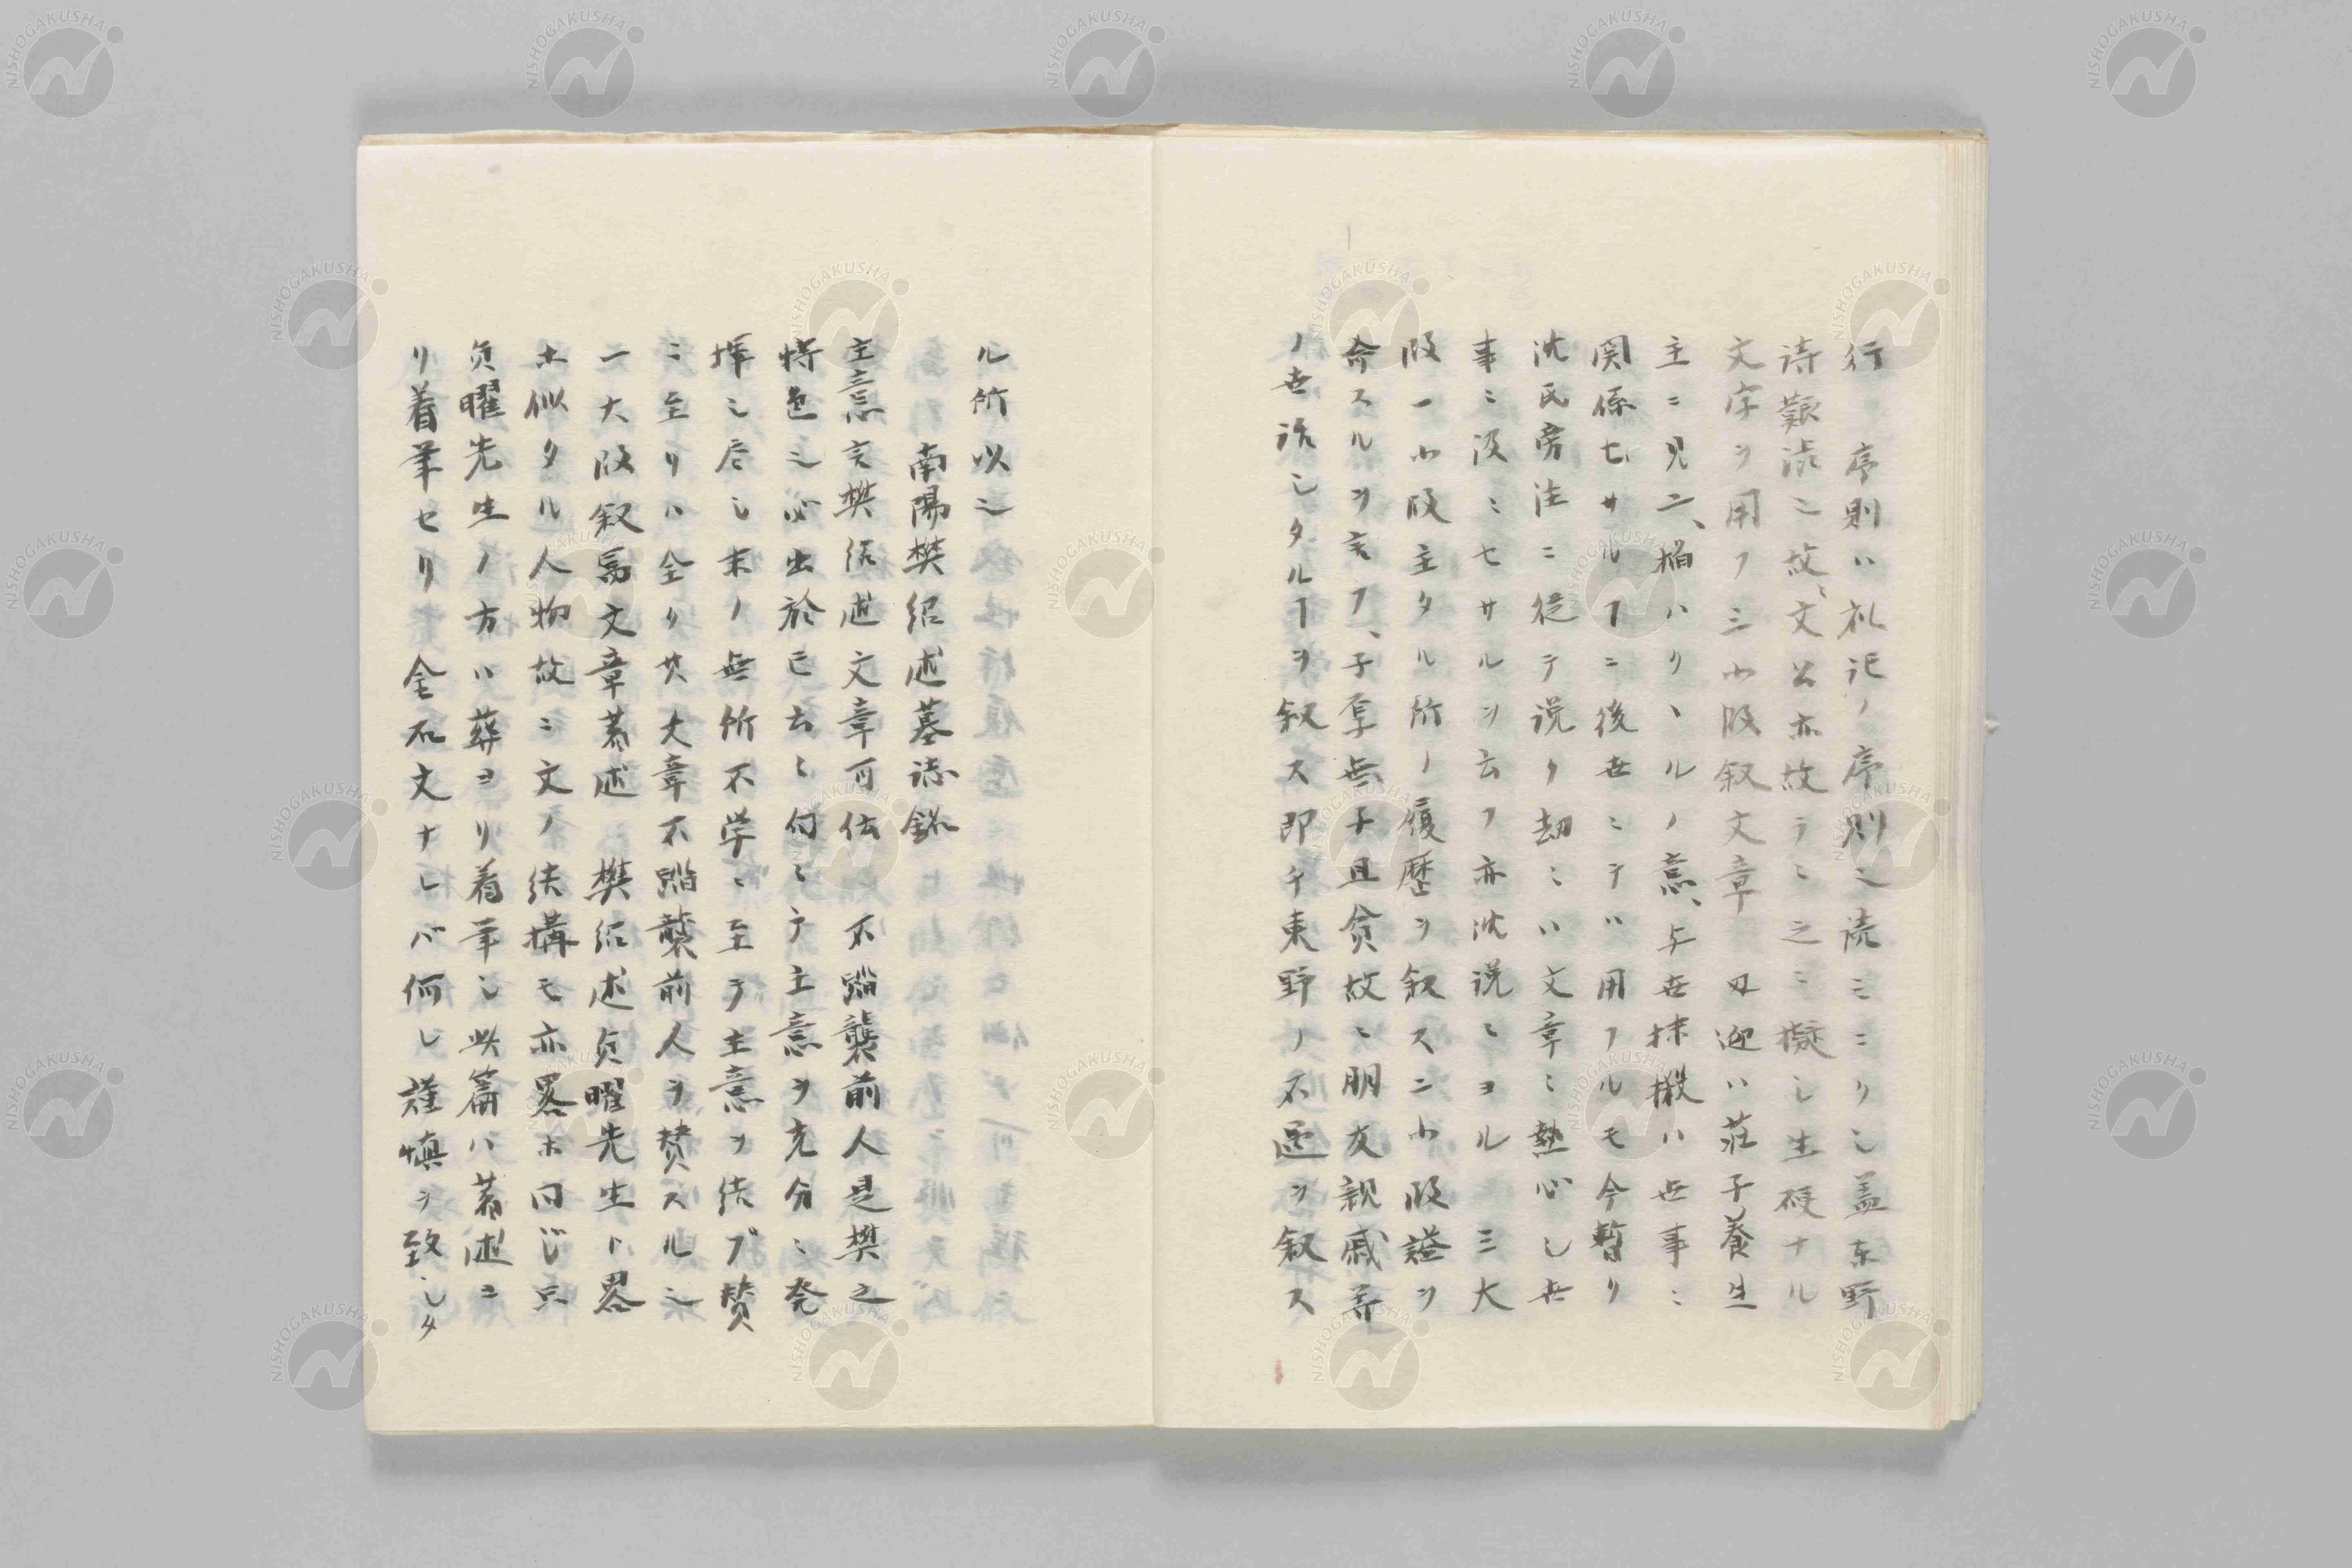 行 序則ハ礼記ノ序則之読ミニクシ蓋東野
詩艱渋ニ故ニ文公亦故ラニ之ニ擬シ生硬ナル
文字ヲ用フ三小段叙文章 日迎ハ荘子養生
主ニ見ユ、搯ハクヽルノ意、与世抹摋ハ世事ニ
関係セサルフニ後世ニテハ用フルモ今暫ク
沈氏旁注ニ従テ説ク劫ニハ文章ニ熱心シ世
事ニ汲ミセサルヲ云フ亦沈説ニヨル 三大
段一小段主タル所ノ履歴ヲ叙ス二小段諡ヲ
命スルヲ言フ、子厚無子且貧故ニ朋友親戚等
ノ世話シタルヿヲ叙ス即チ東野ノ不遇ヲ叙ス
ル所以之
南陽樊紹述墓誌銘
主意言樊紹述文章可伝 不蹈襲前人是樊之
特色之必出於己云ヒ付ヒテ主意ヲ充分ニ発
揮シ尽シ末ノ無所不学ニ至ヲ主意ヲ結ブ賛
ニ至リハ全ク其文章不蹈襲前人ヲ賛スル之
一大段叙為文章著述 樊紹述貞曜先生ト畧
ホ似タル人物故ニ文ノ結構モ亦畧ホ同ジ只
貞曜先生ノ方ハ葬ヨリ着筆シ此篇ハ著述ヨ
リ着筆セリ 金石文ナレバ何レ謹慎ヲ致シタ
NISHOGAKUSHA